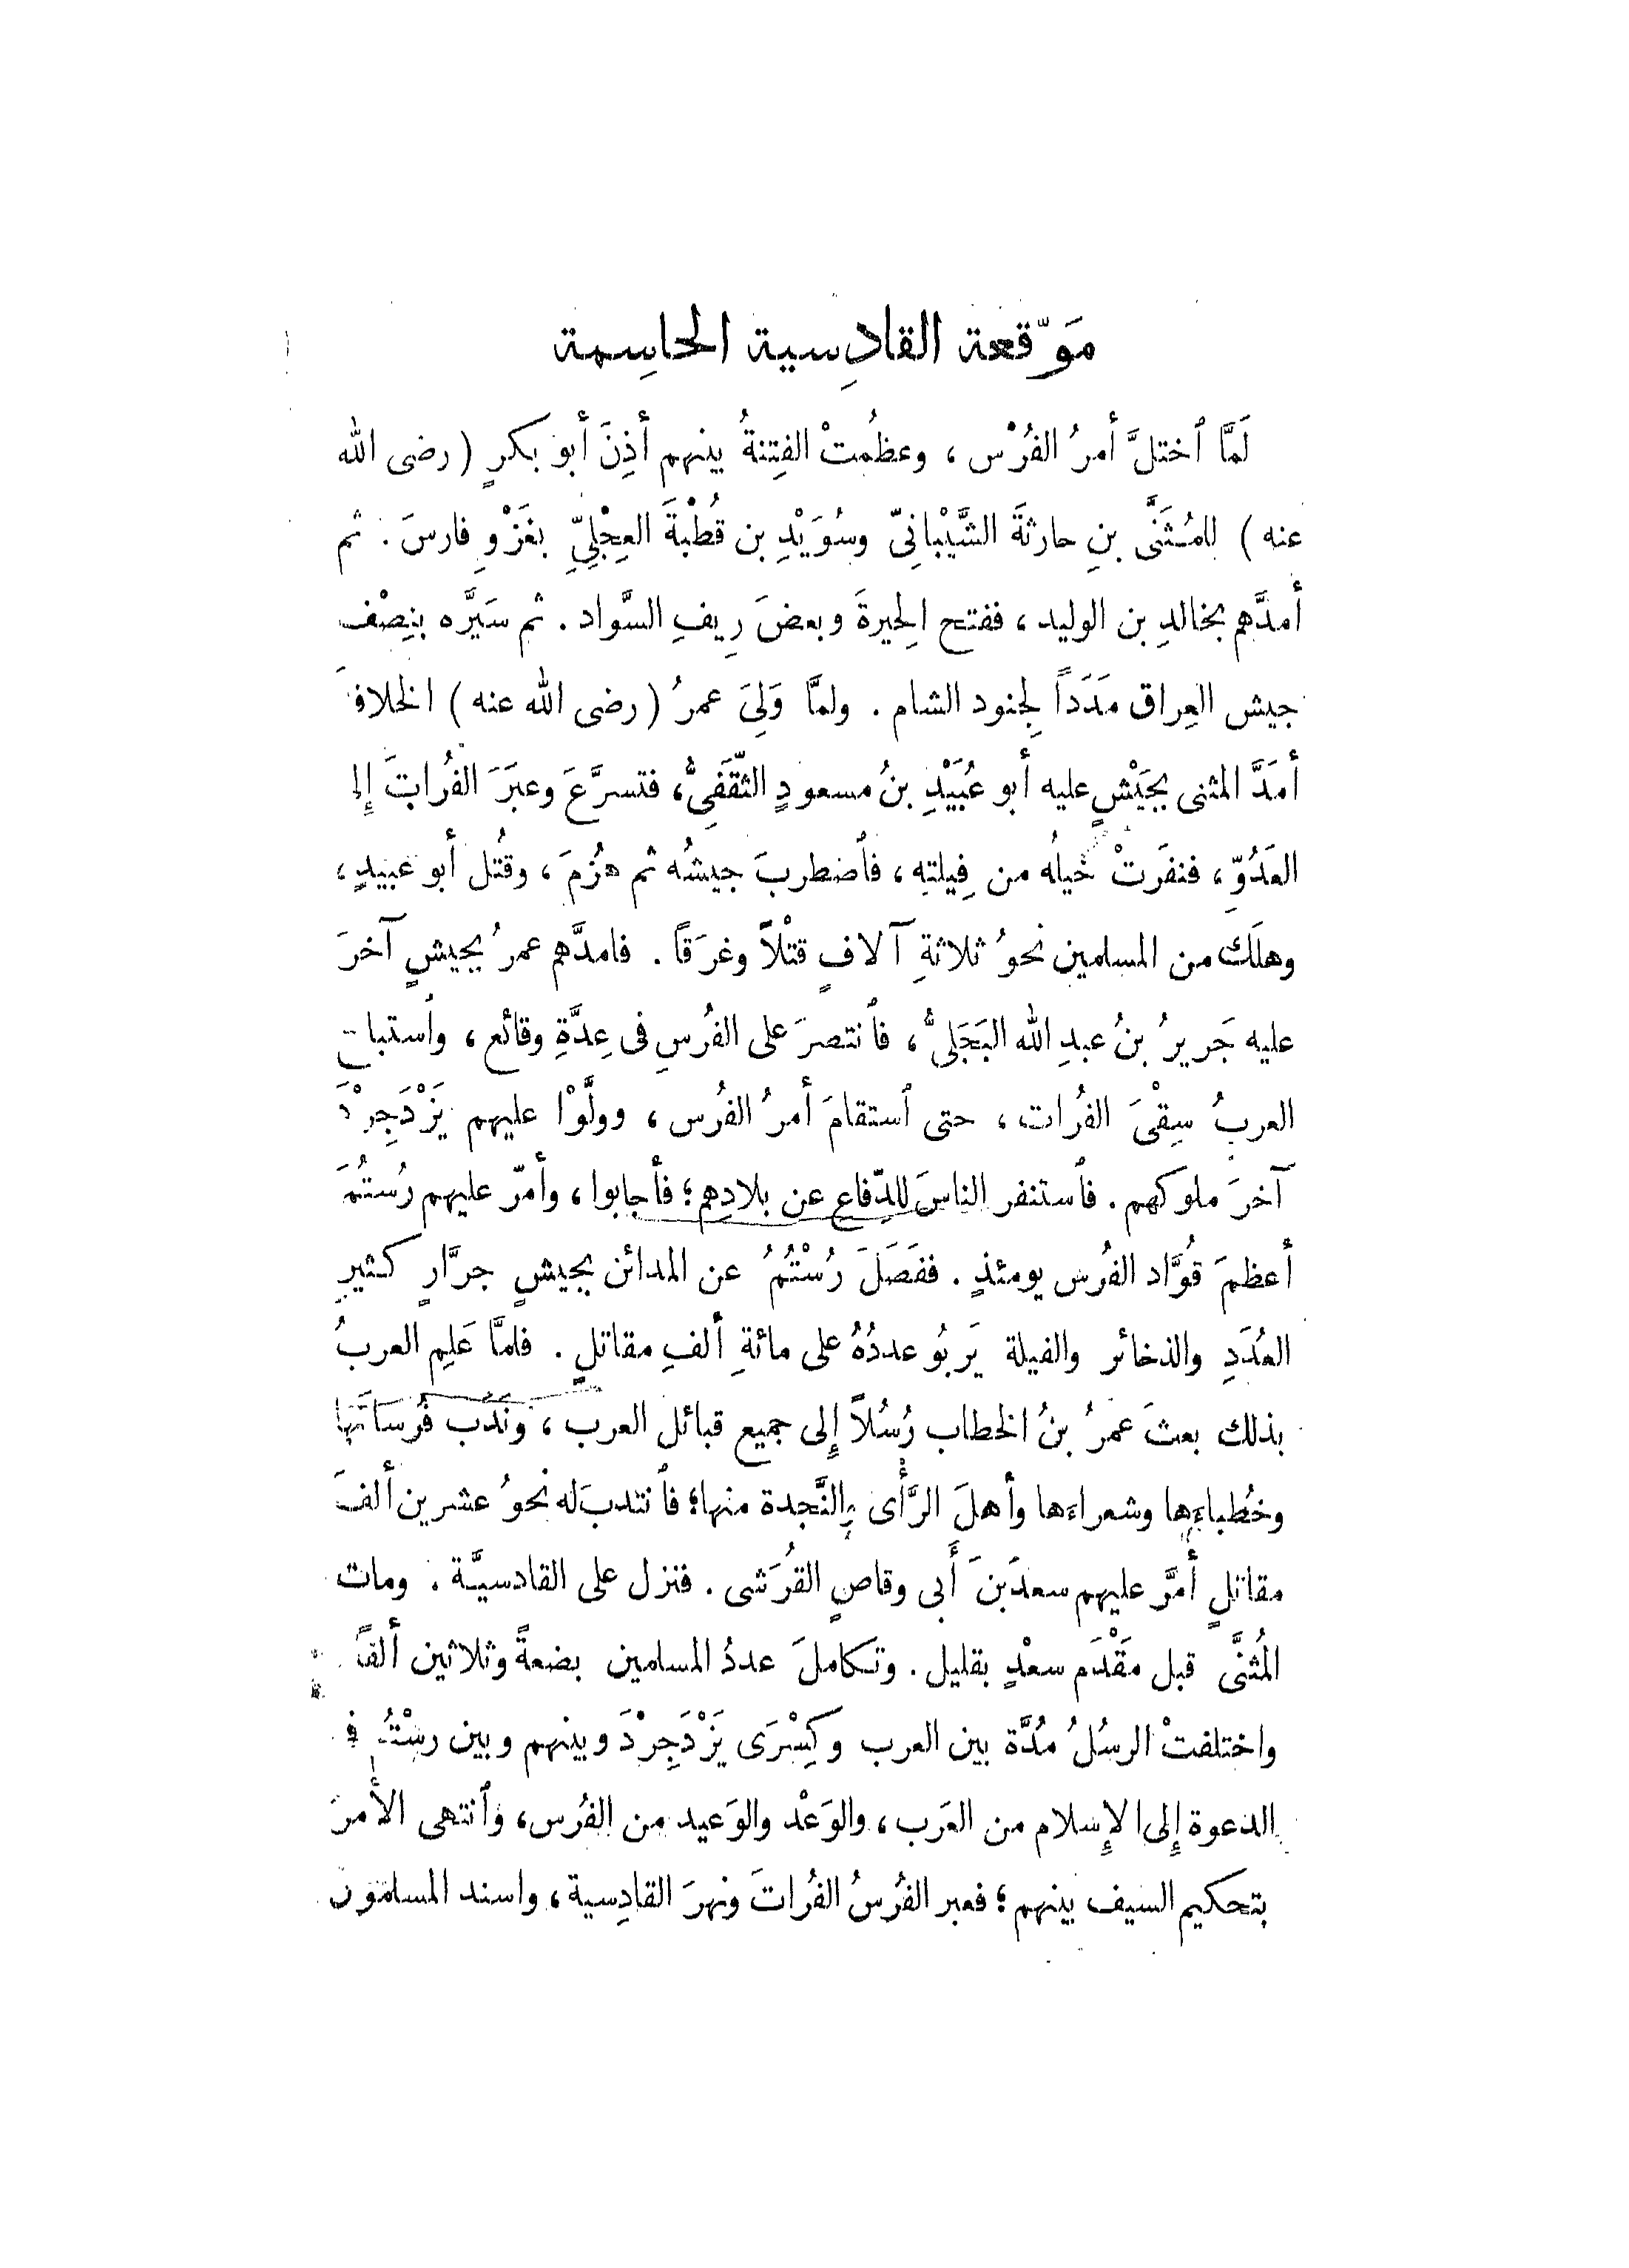 مَوّقعة القادِسية الحاسِمة
لَمَّا ٱختلَّ أمرُ الفُرْس ، وعظُمتْ الفِتنةُ بينهم أذِنَ أبو بكرٍ ( رضى الله
عنه ) للمُثَنَّى بنِ حارثةَ الشَّيْبانِىّ وسُوَيْدِ بن قُطْبةَ العِجْلِىِّ بغَزْوِ فارسَ . ثم
أمدَّهم بخالدِ بن الوليد ، ففتح الحِيرةَ وبعضَ رِيفِ السَّواد . ثم سَيَّره بنِصْف
جيش العِراق مَدَداً لِجنود الشام . ولمَّا وَلِىَ عمرُ ( رضى الله عنه )
أمَدَّ المثنى بجَيْشٍ عليه أبو عُبَيْدِ بنُ مسعودٍ الثَّقَفِىُّ، فتسرَّعَ وعبَرَ الفُراتَ
العَدُوِّ ، فنفَرتْ خيلُه من فِيلتهِ ، فٱضطربَ جيشُه ثم هُزِمَ ، وقُتل أبو عبيدٍ ،
وهلَك من المسلمين نحوُ ثلاثةِ آلافٍ قتْلاً وغرَقاً . فامدَّهم عمرُ بجيشٍ آخرَ
عليه جَريرُ بنُ عبدِ الله البَجَلىُّ ، فٱنتصرَ على الفُرسِ فى عِدَّةِ وقائع ،
العربُ سِقْىَ الفُرات ، حتى ٱستقامَ أمرُ الفُرس ، وولَّوْا عليهم يَزْدَجِرْدَ
آخرَ ملوكهم . فٱستنفر الناسَ للدِّفاع عن بلادِهم ؛ فأجابوا ، وأمّر عليهم رُستُمَ
أعظمَ قُوَّاد الفُرس يومئذٍ . ففَصَلَ رُسْتُمُ عن المدائن بجيشٍ جرَّارٍ كثيرِ
العُدَدِ والذخائر والفيلة يَربُو عددُهُ على مائةِ ألفِ مقاتلٍ . فلمَّا عَلِم العربُ
بذلك بعثَ عمرُ بنُ الخطاب رُسُلاً إلى جميع قبائل العرب ، ونَدَب فُرسانَها
وخُطباءها وشعراءها وأهلَ الرَّأْى والنَّجدة منها؛ فٱنتدبَ له نحوُ عشرين ألفَ
مقاتلٍ أمَّر عليهم سعدَ بنَ أَبى وقاصٍ القُرَشى . فنزل على القادسيَّة . ومات
المُثنَّى قبل مَقْدَم سعْدٍ بقليل . وتكاملَ عددُ المسلمين بضعةً وثلاثين ألفًا
واختلفتْ الرسُلُ مُدَّة بين العرب وكِسْرَى يَزْدَجِرْدَ وبينهم وبين رسْتُم
الدعوة إلى الإِسلام من العَرب ، والوَعْد والوَعيد من الفُرس، وٱنتهى الأَمرَ
بتحكيم السيف بينهم ؛ فعبر الفُرسُ الفُراتَ ونهرَ القادِسية ، واسند المسلمون